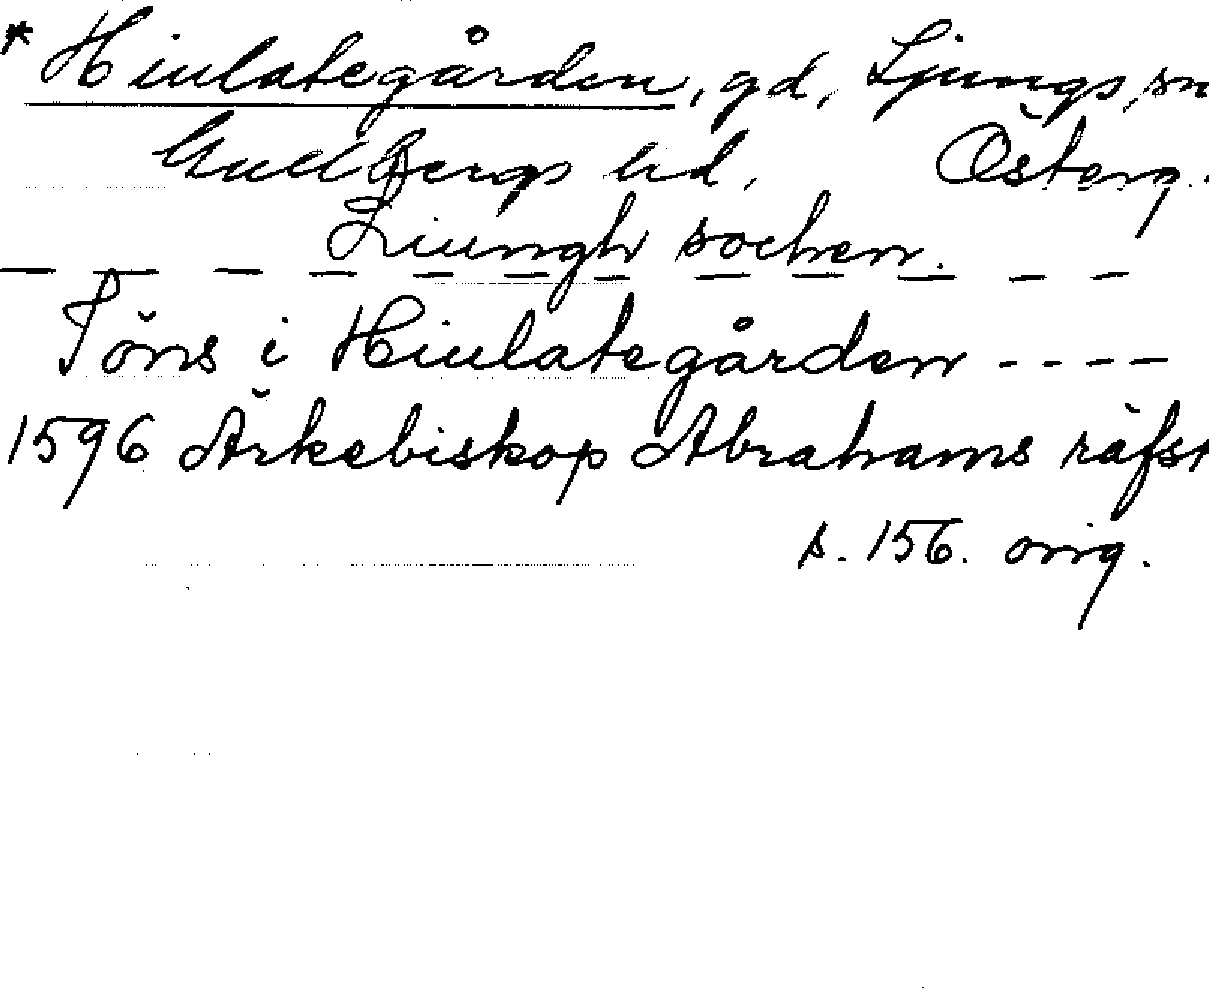 * Hiulategården, gd, Ljungs sn
Gullbergs hd, Österg.
Liungh sochen.
— — — — — — — — — — — —
Jöns i Hiulategården ----
1596 Ärkebiskop Abrahams räfst
s. 156. orig.